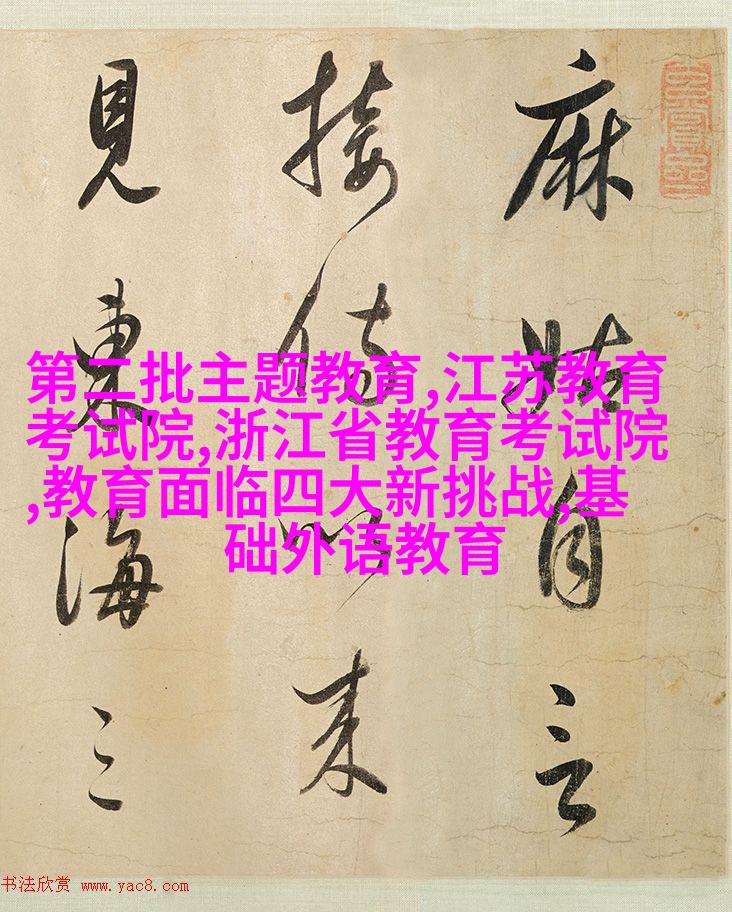 麻姑自言
接侍以来
見東海三
第二批主题教育,江苏教育
考试院,浙江省教育考试院
,教育面临四大新挑战,基
础外语教育
书法欣赏 www.yac8.com